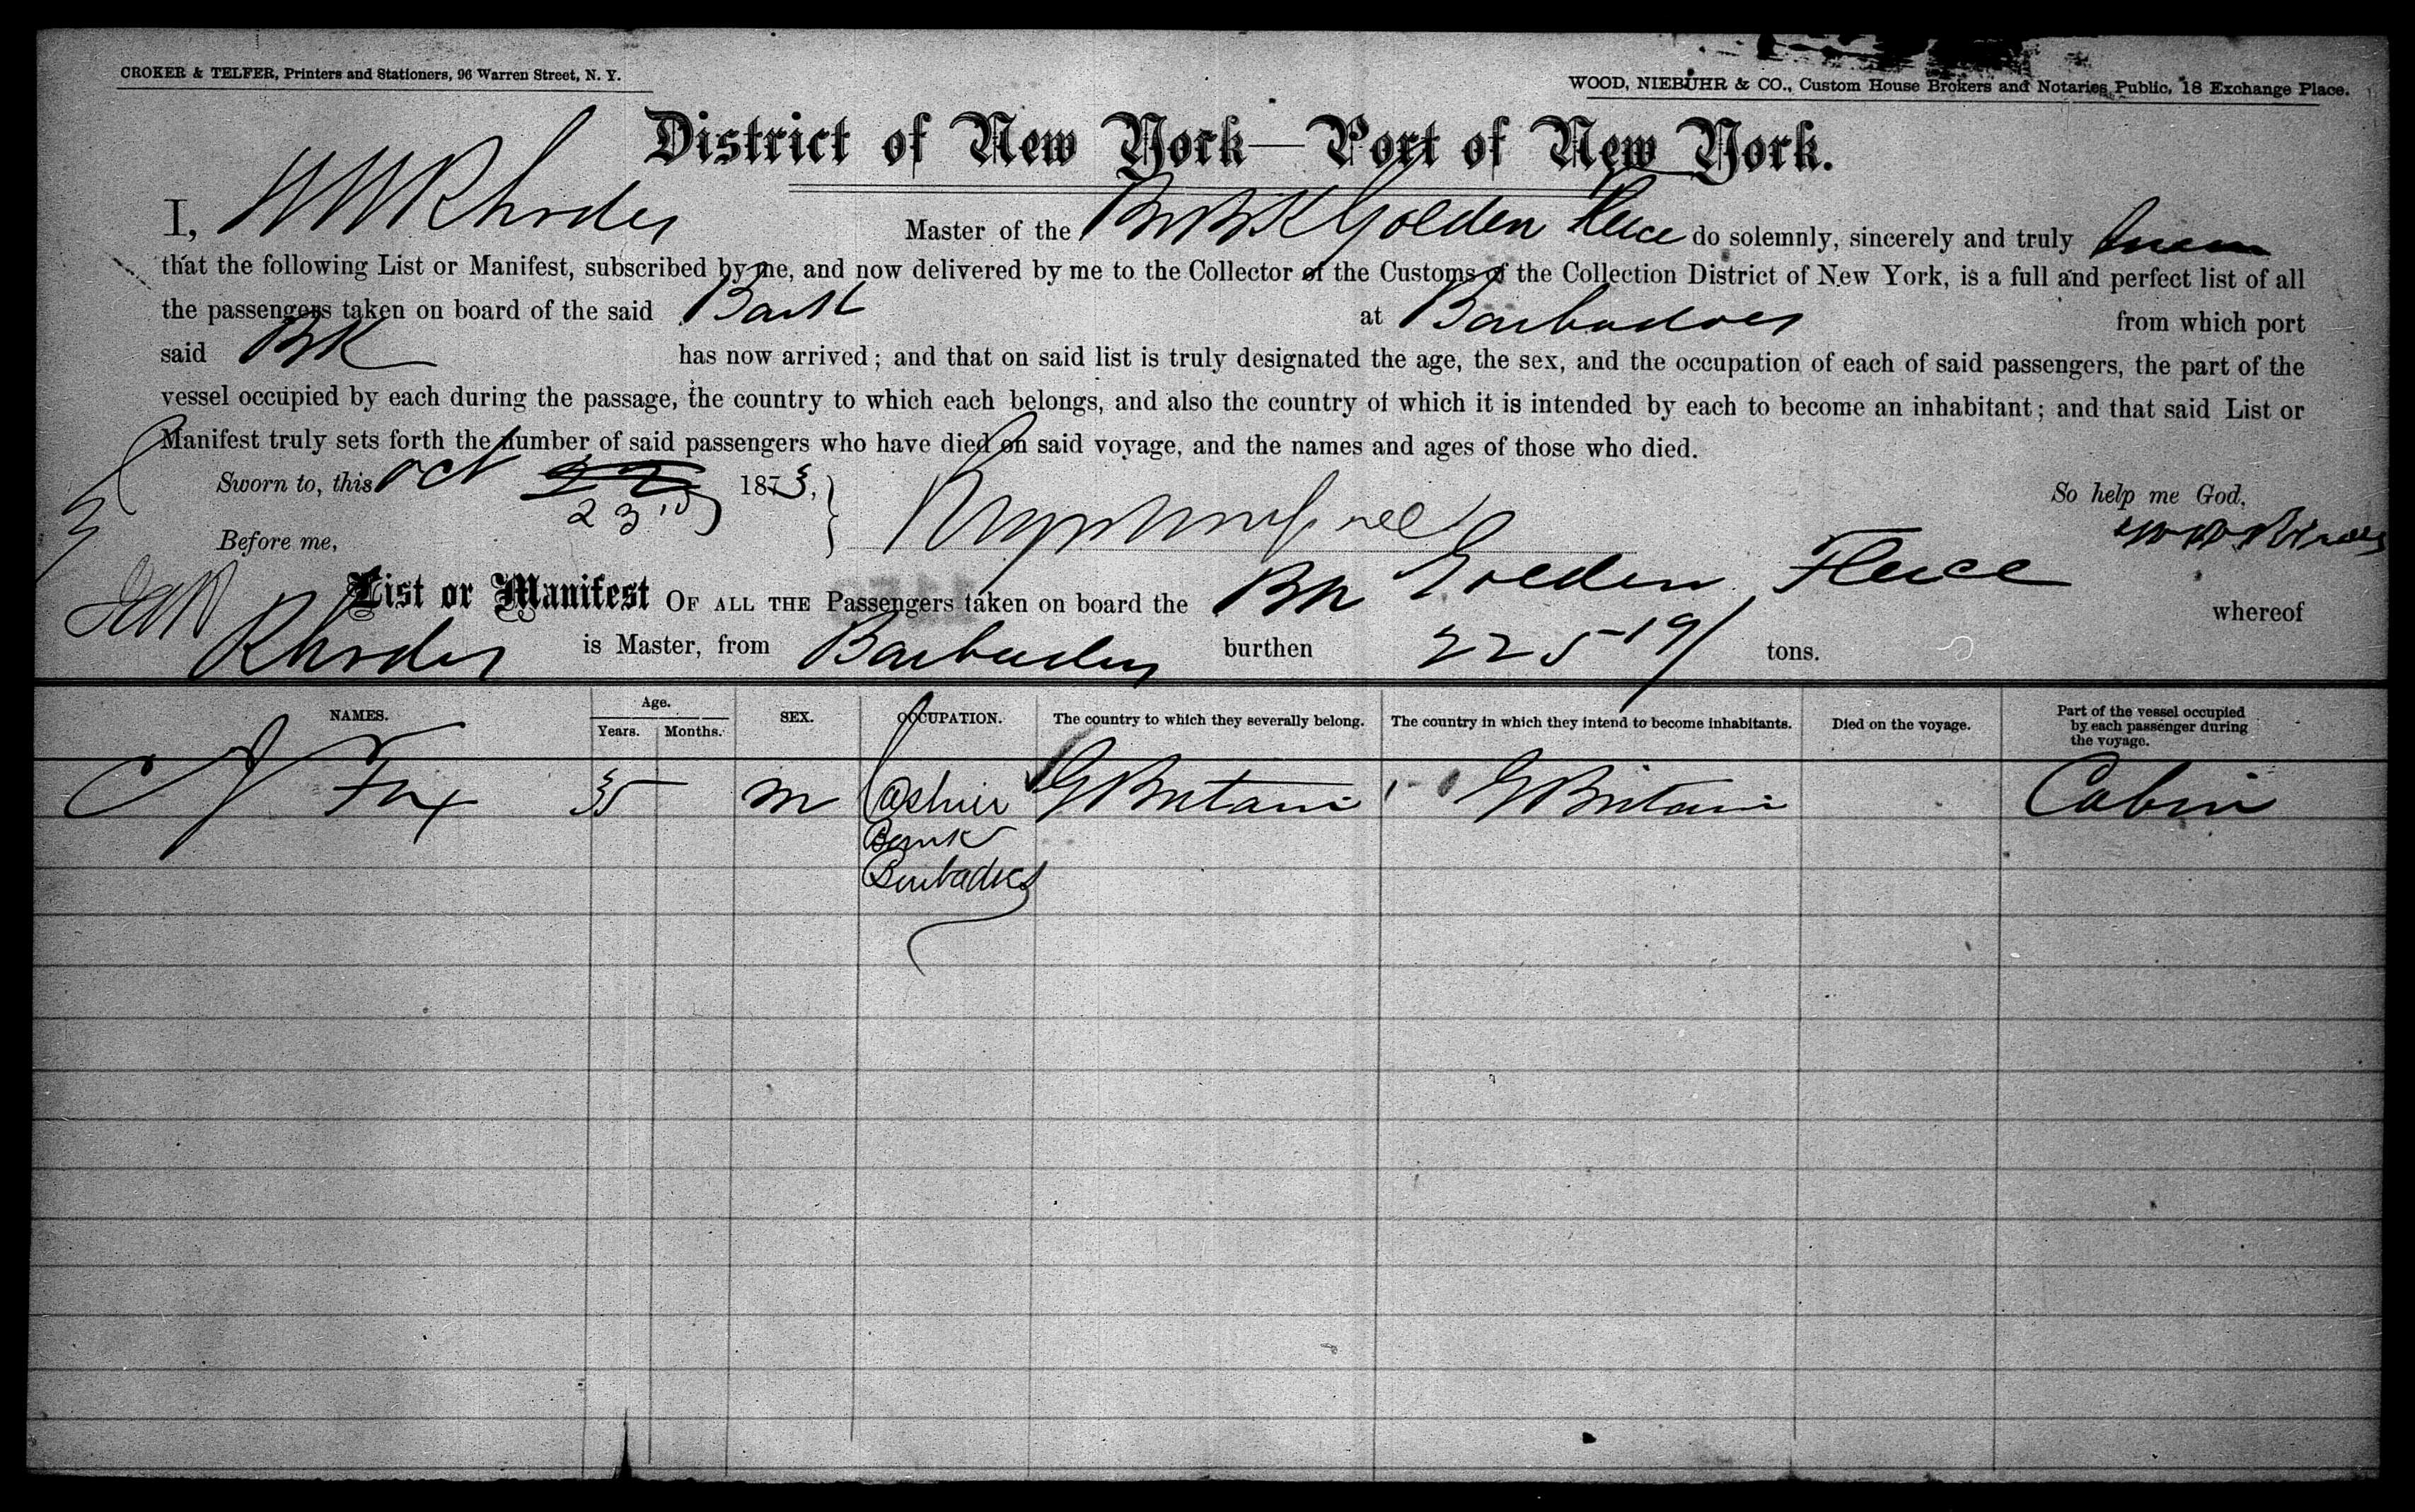 CROKER & TELFER, Printers and Stationers, 96 Warren Street, N. Y.
WOOD, NIEBUHR & CO., Custom House Brokers and Notaries Public, 18 Exchange Place.
District of New York—Port of New York.
I, W W Rhodes Master of the Br Bk Golden Fleece do solemnly, sincerely and truly swear
that the following List or Manifest, subscribed by me, and now delivered by me to the Collector of the Customs of the Collection District of New York, is a full and perfect list of all
the passengers taken on board of the said Bark at Barbadoes from which port
said BK has now arrived; and that on said list is truly designated the age, the sex, and the occupation of each of said passengers, the part of the
vessel occupied by each during the passage, the country to which each belongs, and also the country of which it is intended by each to become an inhabitant; and that said List or
Manifest truly sets forth the number of said passengers who have died on said voyage, and the names and ages of those who died.
Sworn to, this Oct 22 1873, So help me God,
23rd
Before me, W W Rhodes
List or Manifest OF ALL THE Passengers taken on board the Bk Golden Fleece whereof
Rhodes is Master, from Barbados burthen 225 19/ tons.
NAMES. Age. Years. Months. SEX. OCCUPATION. The country to which they severally belong. The country in which they intend to become inhabitants. Died on the voyage. Part of the vessel occupied by each passenger during the voyage.
Fox 35 m Cashier G Britain G Britain Cabin
Bank
Barbadoes